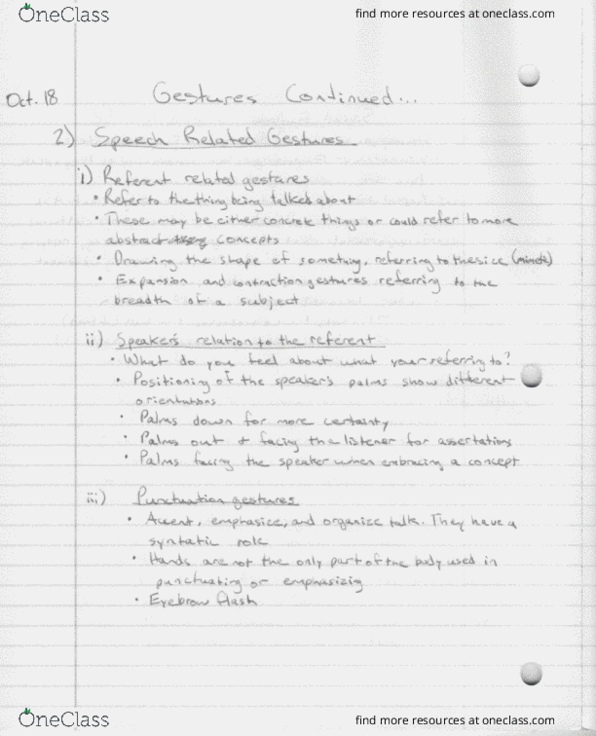 OneClass find more resources at oneclass.com
Oct. 18 Gestures Continued...
2) Speech Related Gestures
i) Referent related gestures
• Refer to the thing being talked about
• These may be either concrete things or could refer to more
abstract concepts
• Drawing the shape of something, referring to the size (minute)
• Expansion and contraction gestures referring to the
breadth of a subject
ii) Speakers relation to the referent
• What do you feel about what your referring to?
• Positioning of the speakers palms show different
orientations
• Palms down for more certainty
• Palms out + facing the listener for assertations
• Palms facing the speaker when embracing a concept
iii) Punctuation gestures
• Accent, emphasize, and organize talk. They have a
syntatic role
• Hands are not the only part of the body used in
punctuating or emphasizig
• Eyebrow flash
OneClass find more resources at oneclass.com